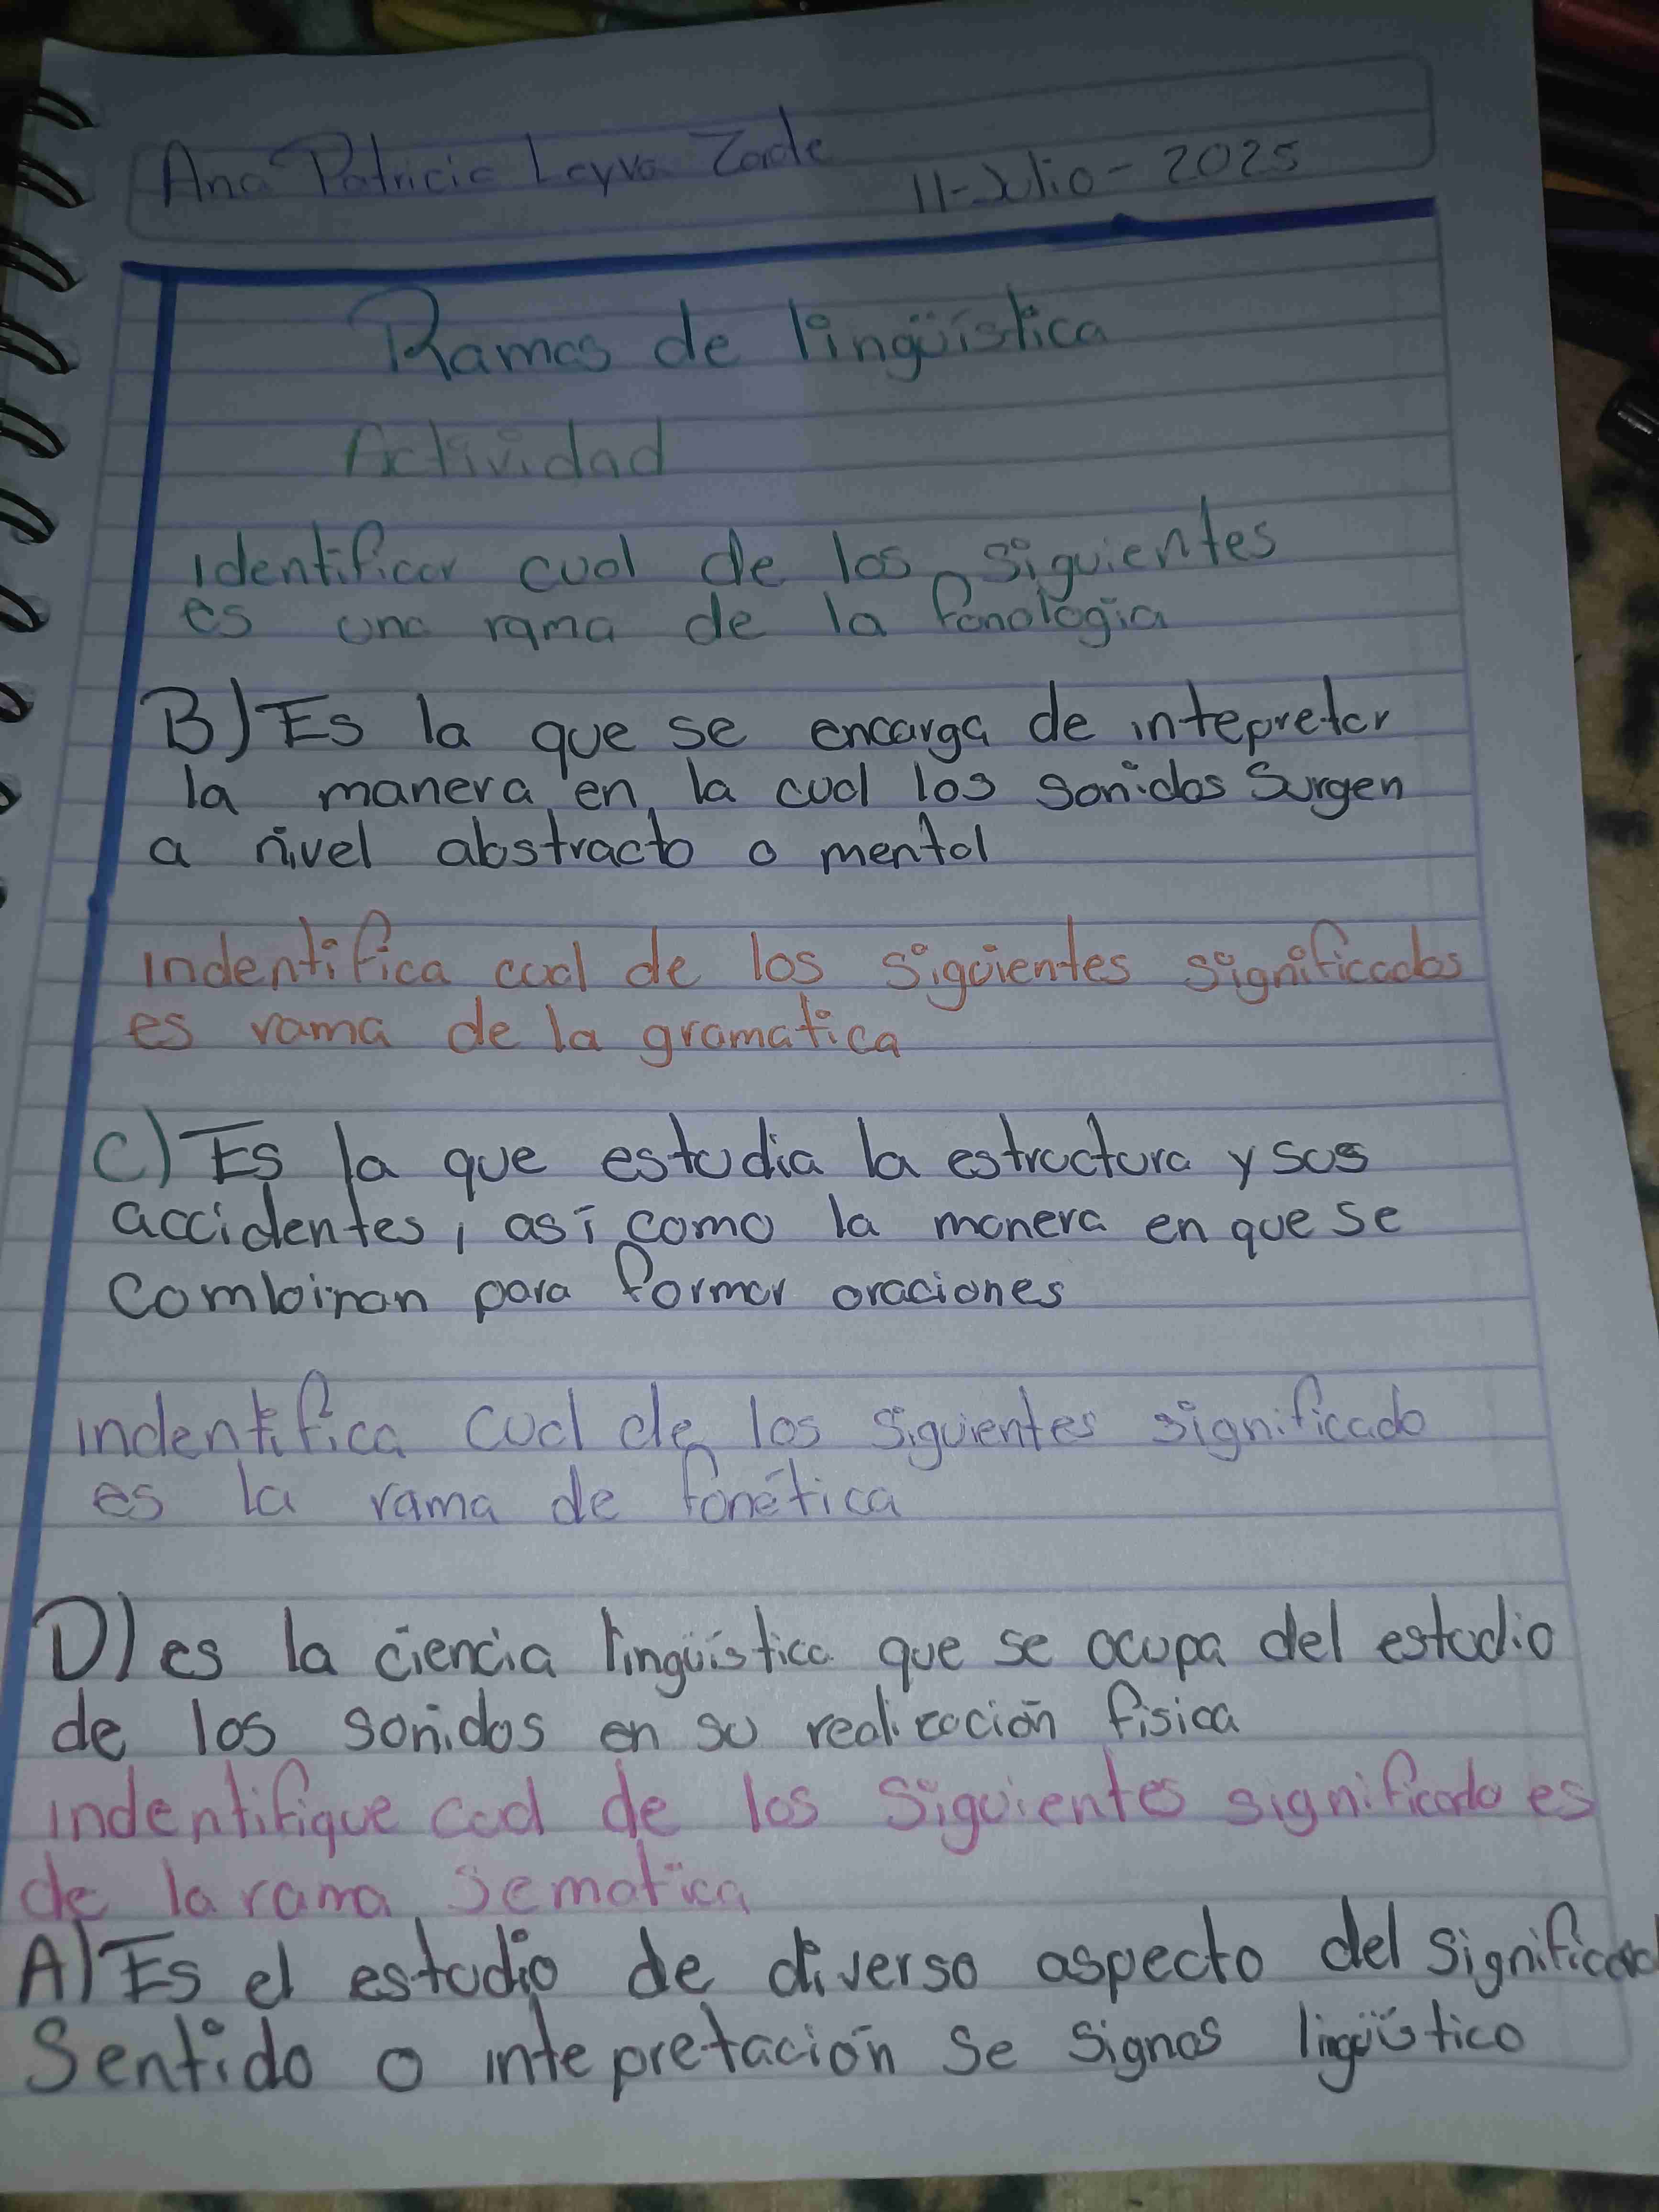 Ana Patricia Leyva
11-Julio-2025
Ramas de lingüística
Actividad
Identificar cual de los siguientes
es una rama de la fonología
B) Es la que se encarga de intepretar
la manera en la cual los sonidos Surgen
a nivel abstracto o mental
indentifica cual de los siguientes significados
es rama de la gramatica
C) Es la que estudia la estructura y sus
accidentes, así como la manera en que se
Combinan para formar oraciones
indentifica cual de los siguientes significado
es la rama de fonética
D) es la ciencia lingüistica que se ocupa del estudio
de los sonidos en su realización física
indentifique cual de los siguientes significado es
de la rama sematica
A) Es el estudio de diverso aspecto del significado
Sentido o intepretación se signos lingüístico